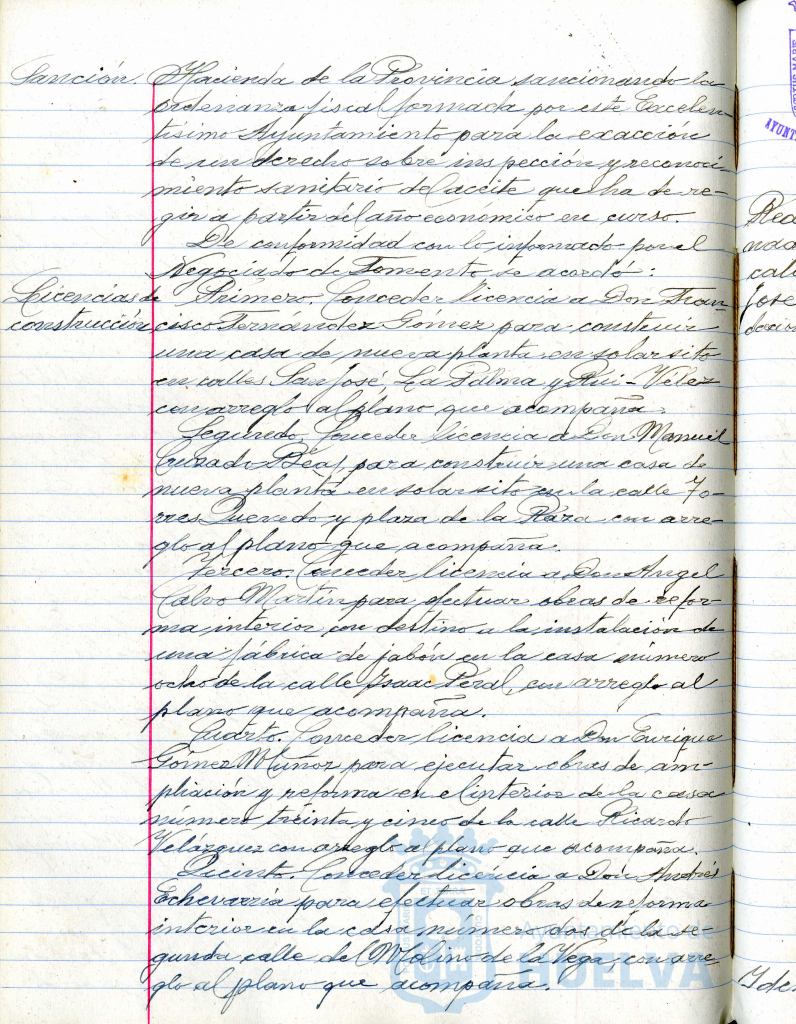 Sanción. Hacienda de la Provincia sancionando la
ordenanza fiscal formada por este Excelen-
tísimo Ayuntamiento para la exacción
de un derecho sobre inspección y reconoci-
miento sanitario del aceite que ha de re-
gir a partir del año económico en curso.
De conformidad con lo informado por el
Negociado de Fomento se acordó:
Licencias de Primero. Conceder licencia a Don Fran-
construcción cisco Fernández Gómez para construir
una casa de nueva planta en solar sito
en calles San José, La Palma y Rui-Vélez
con arreglo al plano que acompaña.
Segundo. Conceder licencia a Don Manuel
Cruzado Béas, para construir una casa de
nueva planta en solar sito en la calle To-
rres Quevedo y plaza de la Raza con arre-
glo al plano que acompaña.
Tercero. Conceder licencia a Don Angel
Calvo Martín para efectuar obras de refor-
ma interior con destino a la instalación de
una fabrica de jabón en la casa número
ocho de la calle Isaac Peral, con arreglo al
plano que acompaña.
Cuarto. Conceder licencia a Don Enrique
Gómez Muñoz para ejecutar obras de am-
pliación y reforma en el interior de la casa
número treinta y cinco de la calle Ricardo
Velázquez con arreglo al plano que acompaña.
Quinto. Conceder licencia a Don Andrés
Echevarría para efectuar obras de reforma
interior en la casa número dos de la se-
gunda calle del Molino de la Vega, con arre-
glo al plano que acompaña.
Ayuntamiento de
HUELVA